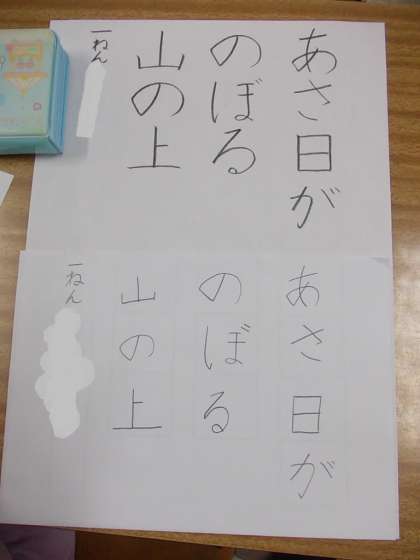 あさ日が
のぼる
山の上
一ねん
あさ日が
のぼる
山の上
一ねん